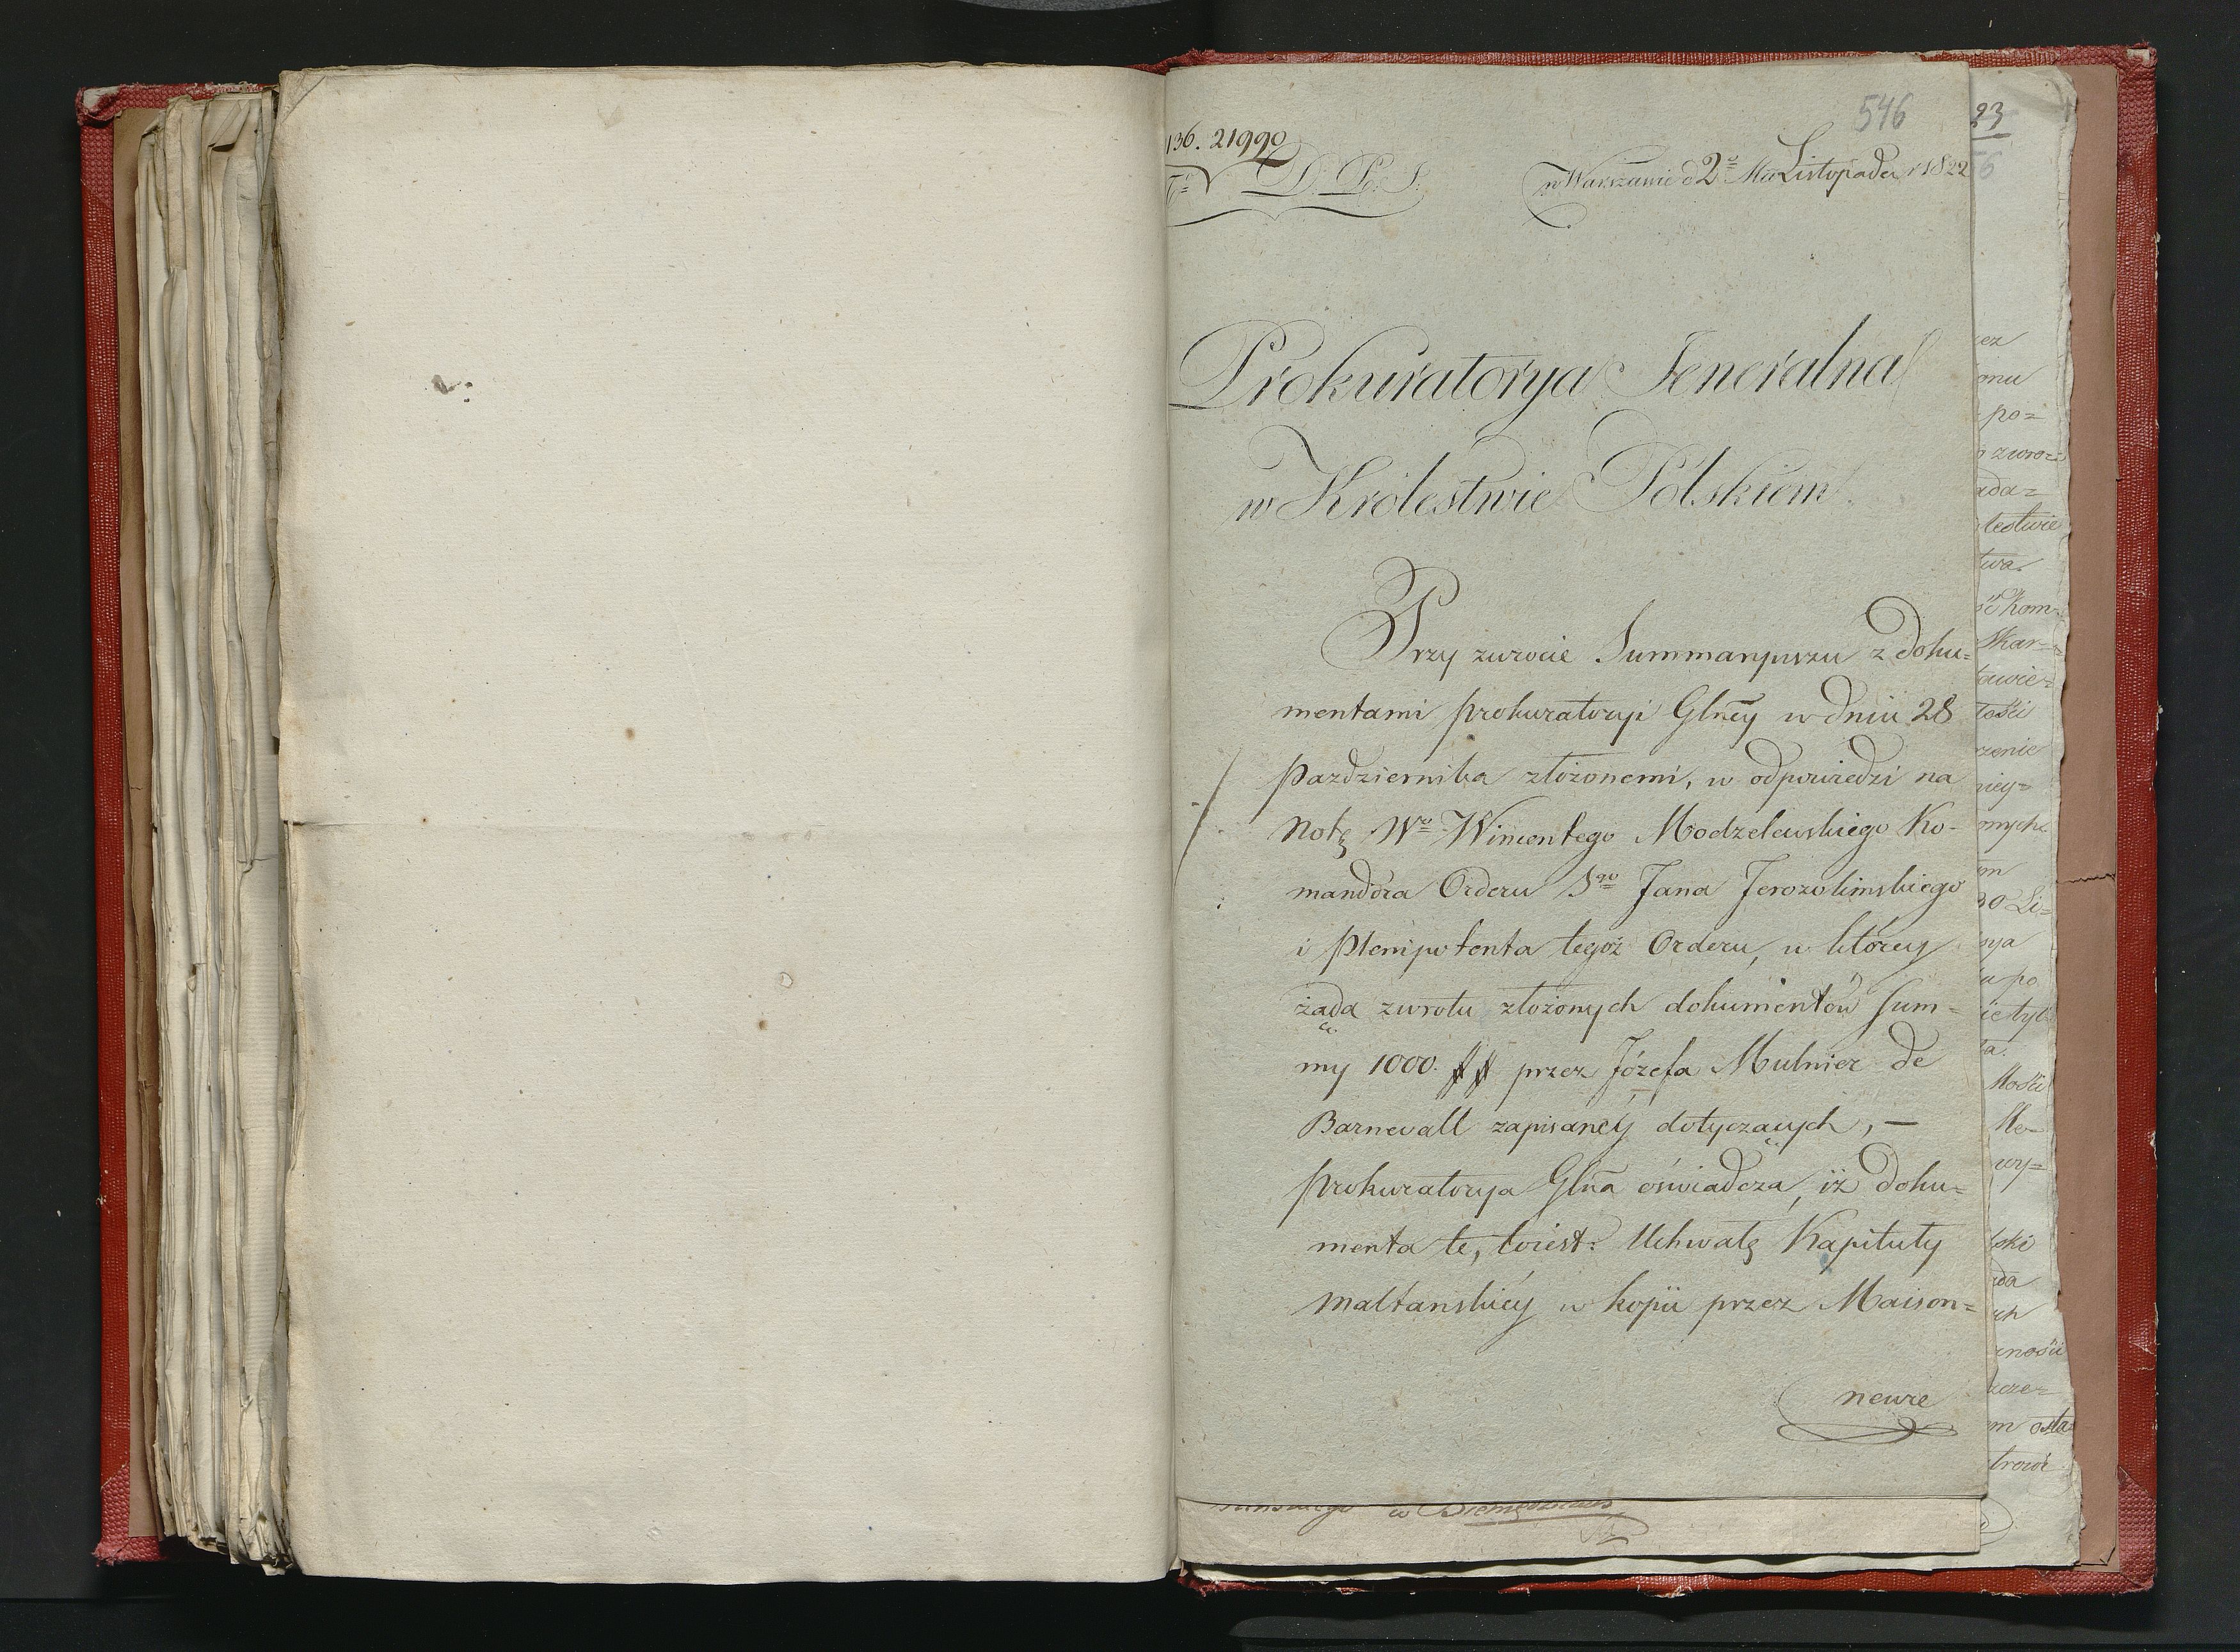 546
136. 21990
D. P. S.
w Warszawie d 2º Mca Listopada r 1822
Prokuratorya Jeneralna
w Królestwie Polskiem.
Przy zwrocie Summaryuszu z doku=
mentami prokuratoryi Glney w dniu 28
Pazdziernika złożonemi, w odpowiedzi na
Notę Wo Wincentego Modzelewskiego Ko-
mandora Orderu Sgo Jana Jerozolimskiego
i Plenipotenta tegoż Orderu, w którey
żąda zwrotu złożonych dokumentów Sum-
my 1000. ## przez Józefa Mulnier de
Barnevall zapisaney dotyczących, —
prokuratorya Glna oświadcza, iż doku=
menta te, toiest: Uchwałę Kapituły
Maltanskiey w kopii przez Maison=
neure
23
6
ez
onu
po=
zwro=
ada=
twa
kom-
Skar=
tości
zenie
ney=
onych
m
30 Li=
ya
po
tyl
a.
Mo-
wy=
ski
da
ch
cze=
m osta
w Siemędzicach